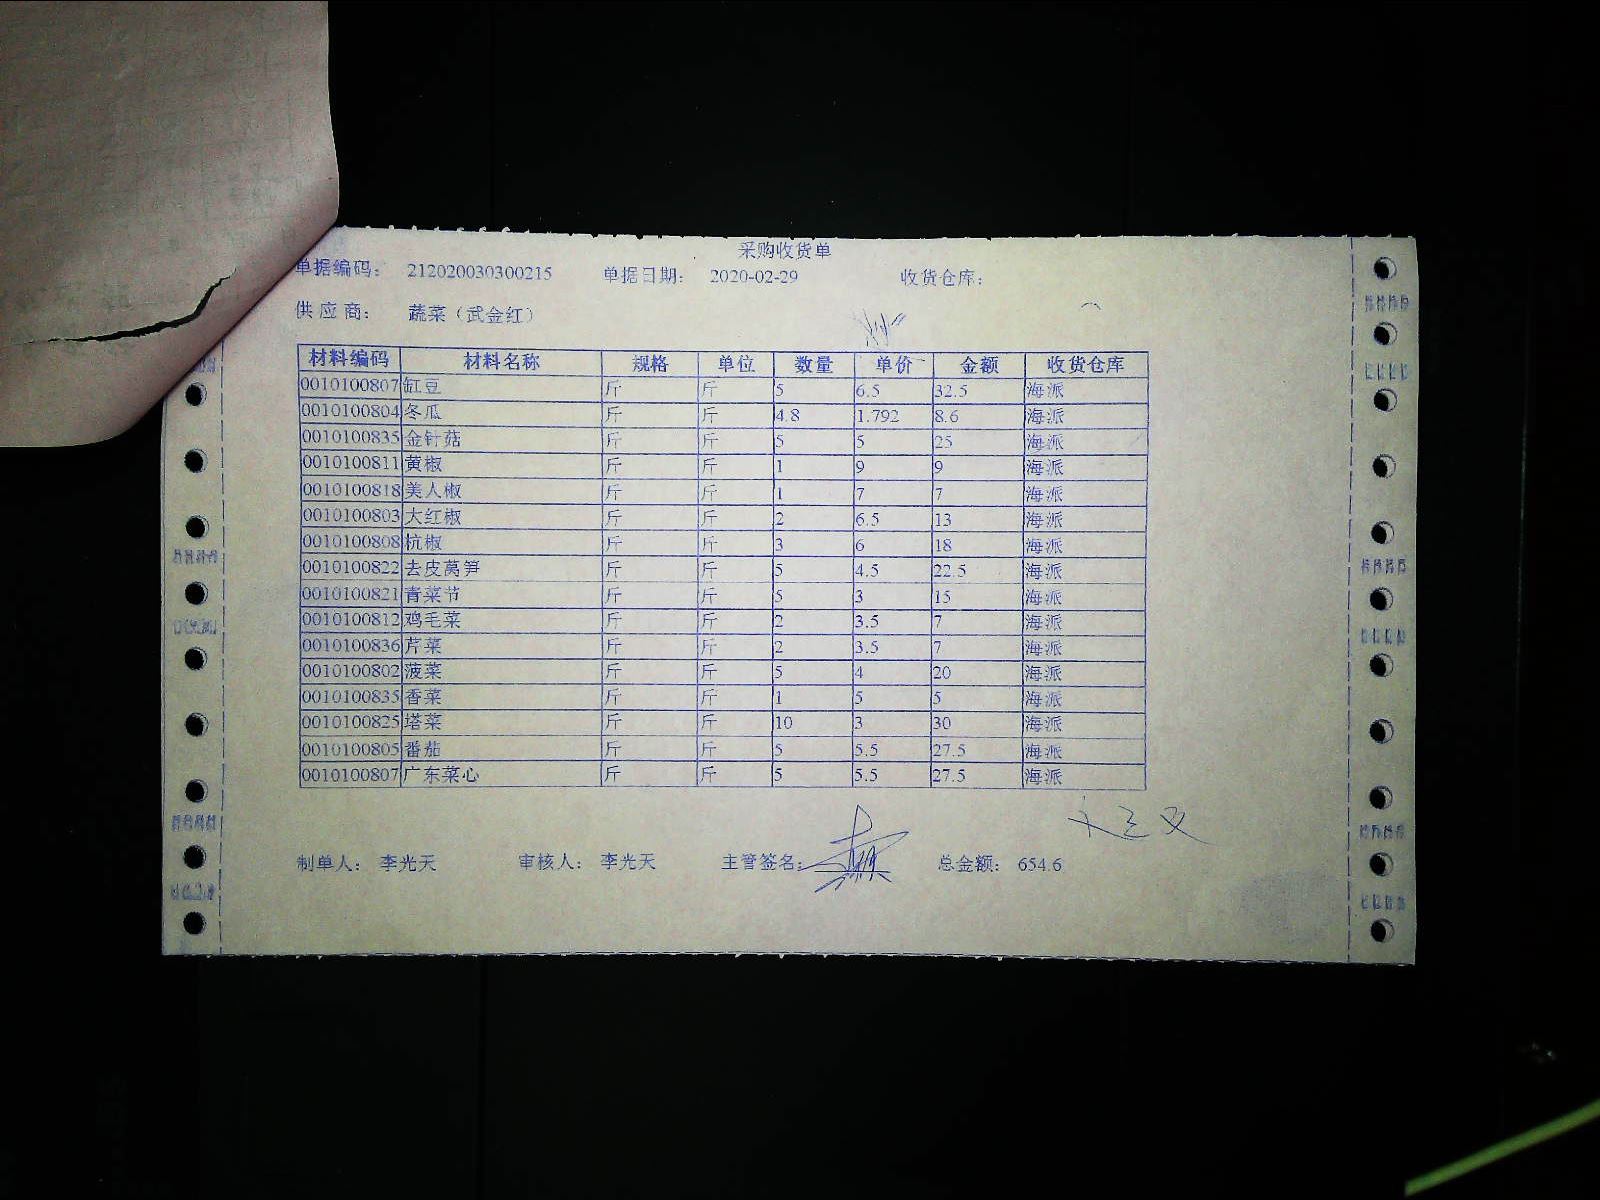 采购收货单
单据编码： 212020030300215 单据日期： 2020-02-29 收货仓库：
供应商： 蔬菜（武金红）
材料编码 材料名称 规格 单位 数量 单价 金额 收货仓库
0010100807 缸豆 斤 斤 5 6.5 32.5 海派
0010100804 冬瓜 斤 斤 4.8 1.792 8.6 海派
0010100835 金针菇 斤 斤 5 5 25 海派
0010100811 黄椒 斤 斤 1 9 9 海派
0010100818 美人椒 斤 斤 1 7 7 海派
0010100803 大红椒 斤 斤 2 6.5 13 海派
0010100808 杭椒 斤 斤 3 6 18 海派
0010100822 去皮莴笋 斤 斤 5 4.5 22.5 海派
0010100821 青菜节 斤 斤 5 3 15 海派
0010100812 鸡毛菜 斤 斤 2 3.5 7 海派
0010100836 芹菜 斤 斤 2 3.5 7 海派
0010100802 菠菜 斤 斤 5 4 20 海派
0010100835 香菜 斤 斤 1 5 5 海派
0010100825 塔菜 斤 斤 10 3 30 海派
0010100805 番茄 斤 斤 5 5.5 27.5 海派
0010100807 广东菜心 斤 斤 5 5.5 27.5 海派
制单人： 李光天 审核人： 李光天 主管签名： 总金额： 654.6